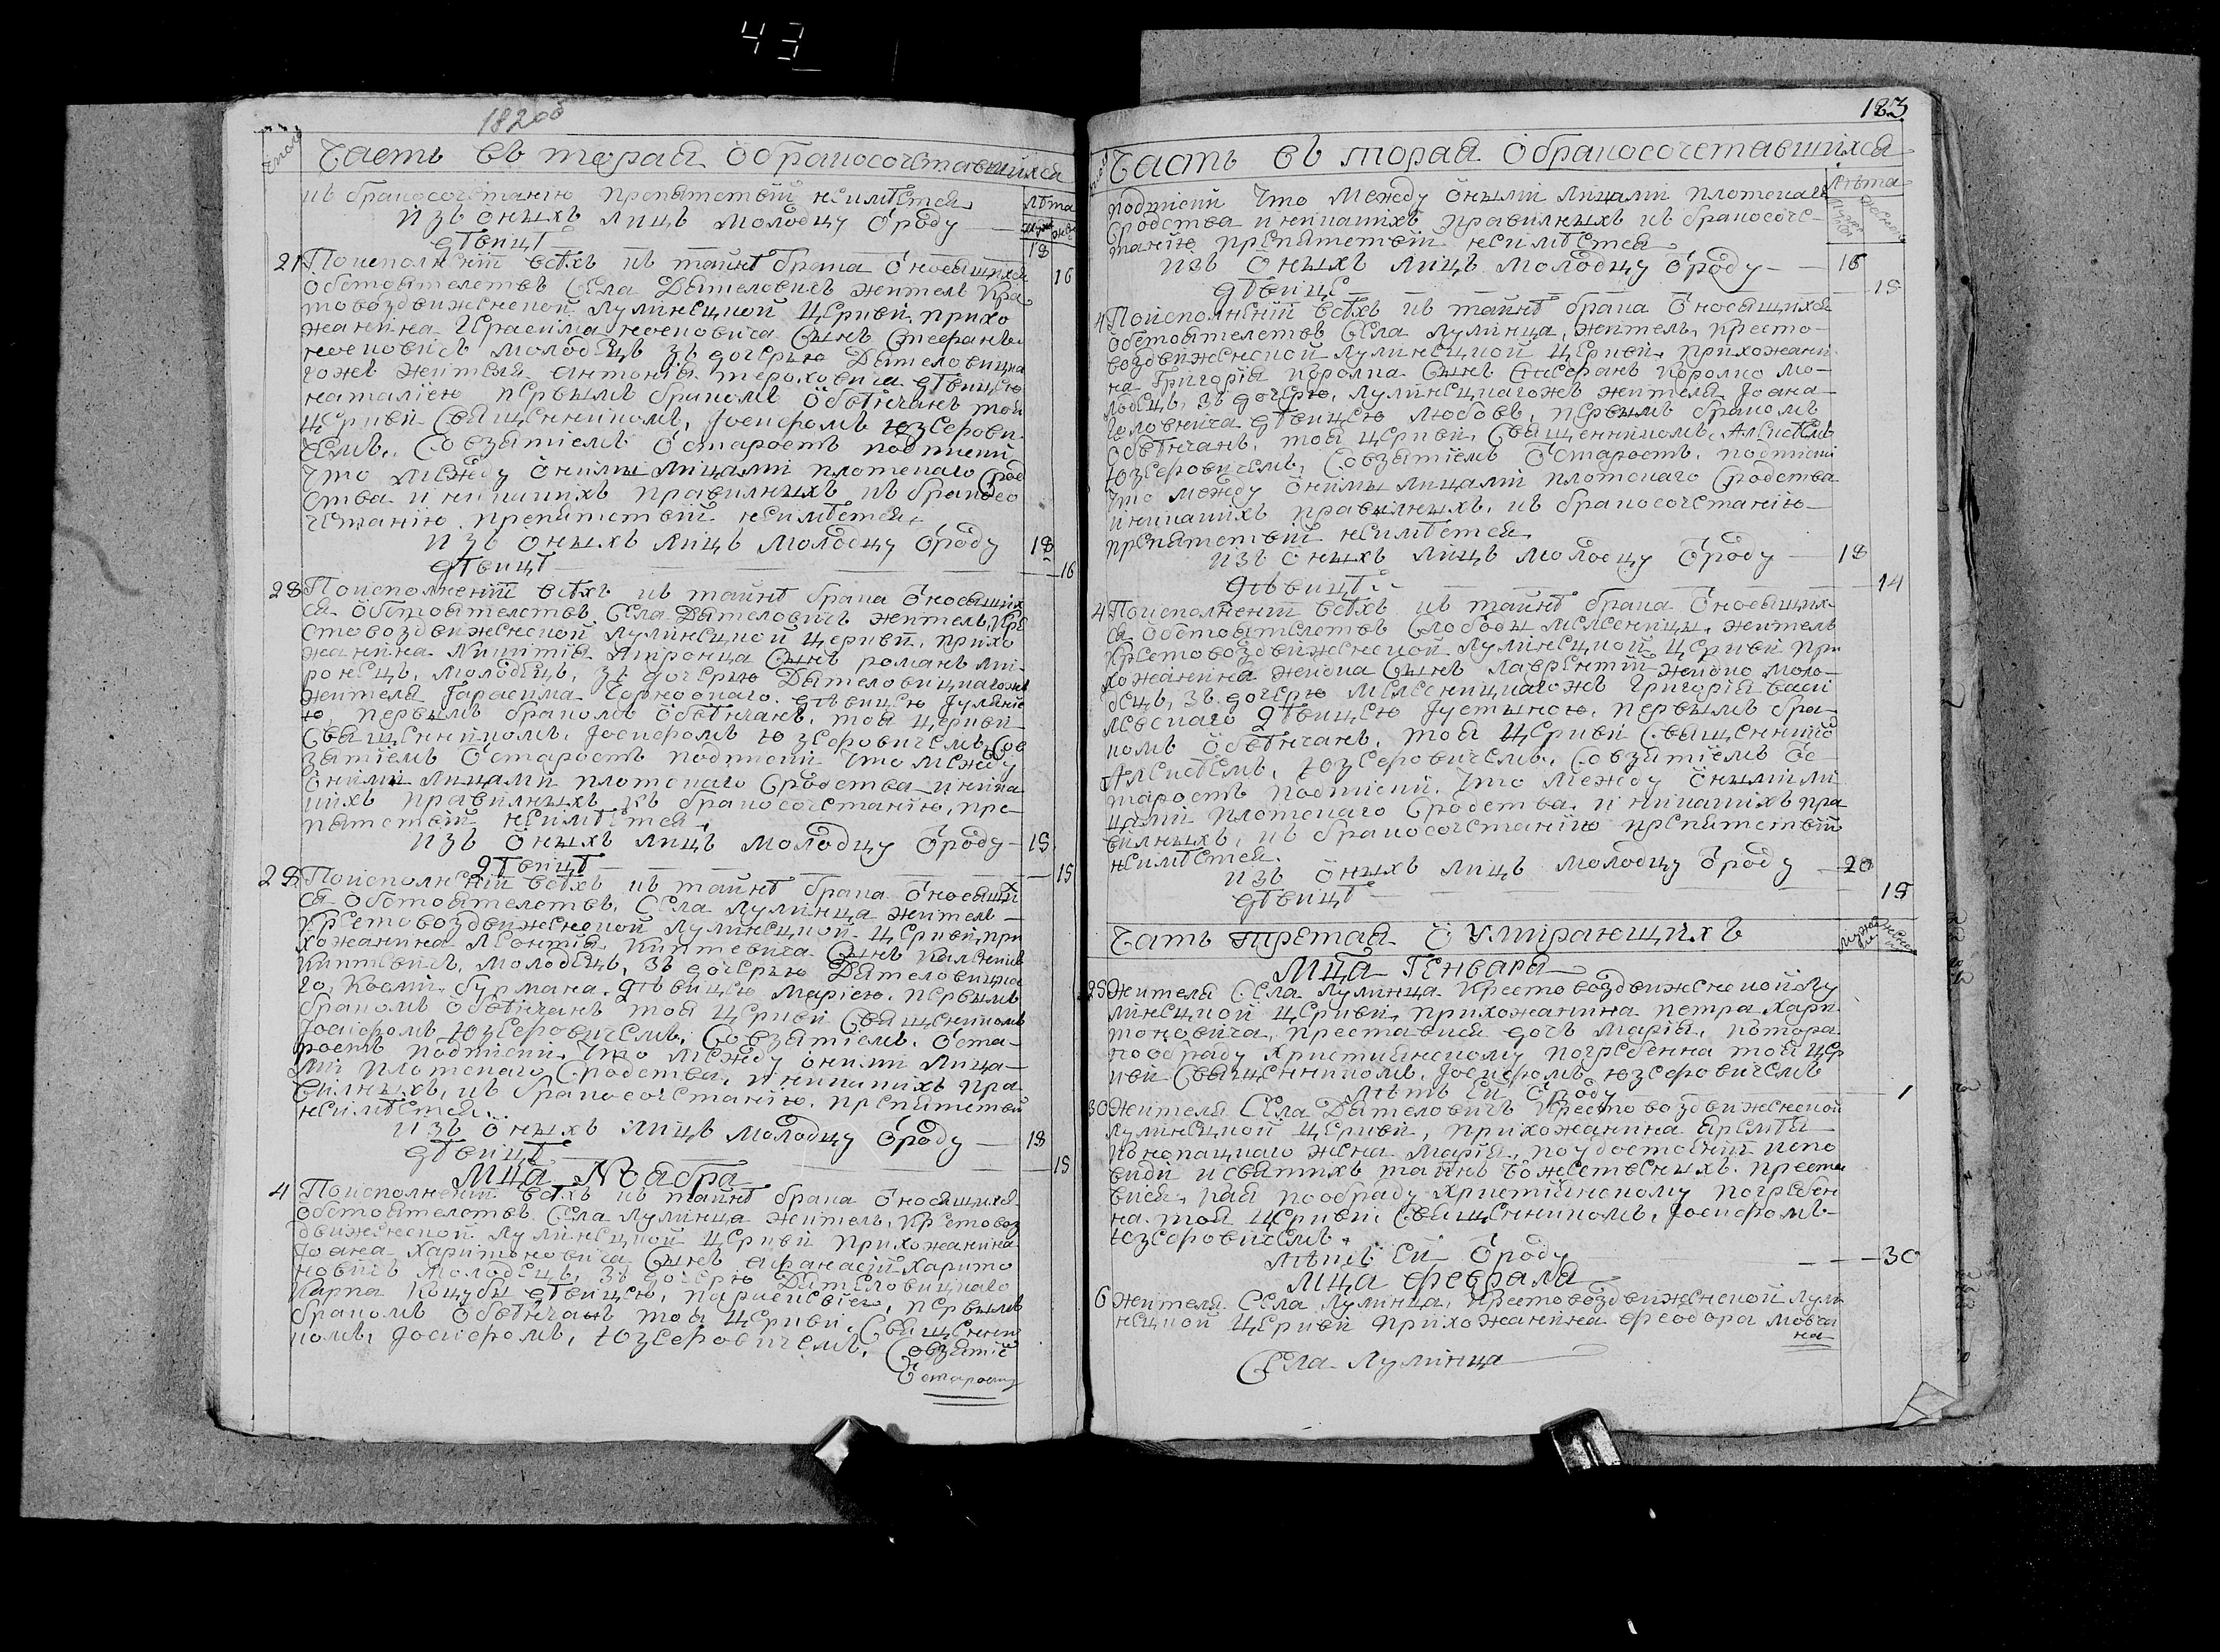 43
1820 год
Число
Часть вь торая О бракосочетавшихся
къ бракосочетанію препятствій неимѣется
лѣта
изъ оныхъ лицъ молодцу ѿроду — 18
дѣвицѣ — 16
21 Поисполненій всѣхъ къ тайнѣ брака ѿносящихся
обстоятелствъ Села Дятеловичъ жителъ Кре
стовоздвиженской лулинецкой церкви, прихо
жанина Сынъ Стефанъ
молодецъ зъ дочерью Дятеловицка
гожъ жителя Антонія тероховича дѣвицею
наталіею первымъ бракомъ Обвѣнчанъ тоя
церкви Священникомъ, Іосифомъ юзефови
чемъ, Совзятіемъ Ѿстаростъ подписки
Что между онимы лицами плотскаго Срод
ства и никакихъ правилныхъ къ бракосо
четанію препятствій неимѣется
изъ оныхъ лицъ молодцу ѿроду 18
дѣвицѣ — 16
28 Поисполненій всѣхъ къ тайнѣ брака ѿносящих
ся обстоятелствъ Села Дятеловичъ жителъ, Кре
стовоздвиженской лулинецкой церкви, прихо
жанина Никитія миронца Сынъ романъ ми
ронецъ, молодецъ, зъ дочерью Дятеловицкагожъ
жителя Гарасима дѣвицею Іуліяніе
ю, первымъ бракомъ Обвѣнчанъ, тоя церкви
Священникомъ, Іосифомъ юзефовичемъ, Сов
зятіемъ Ѿстаростъ подписки что между
онимы лицами плотскаго Сродства и ника
кихъ правилныхъ къ бракосочетанію, пре
пятствій неимѣется
изъ оныхъ лицъ молодцу ѿроду — 18
дѣвицѣ — 18
28 Поисполненій всѣхъ къ тайнѣ брака ѿносящих
ся обстоятелствъ, Села лулинца жителъ
Крестовоздвиженской лулинецкой церкви, при
хожанина Леонтія Киптевича Сынъ
Киптевичъ, молодецъ, зъ дочерью Дятеловицка
го, Косми бурмана, дѣвицею маріею, первымъ
бракомъ обвѣнчанъ тоя церкви Священникомъ
Іосифомъ юзефовичемъ, Совзятіемъ, Ѿста
ростъ подписки, что между оними лица
ми плотскаго Сродства, и никакихъ пра
вилныхъ, къ бракосочетанію, препятствій
неимѣется.
изъ оныхъ лицъ молодцу ѿроду — 18
дѣвицѣ — 18
Мца Ноября
4 Поисполненій всѣхъ къ тайнѣ брака ѿносящихся
обстоятелствъ Села лулинца жителъ, Крестовоз
движенской лулинецкой церкви прихожанина
Іоана Харитоновича Сынъ Афанасій Харито
новичъ молодецъ, зъ дочерью Дятеловицкаго
Карпа Коцубы дѣвицею, параскевіею, первымъ
бракомъ Обвѣнчанъ тоя церкви, Священни
комъ, Іосифомъ, юзефовичемъ, Совзятіе
Ѿстаростъ
183
Часть вь торая О бракосочетавшихся
лѣта
подписки Что между онымы лицами плотскаго
Сродства и никакихъ правилныхъ къ бракосоче
танію препятствій неимѣется
изъ оныхъ лицъ молодцу ѿроду — 18
дѣвицѣ — 18
4 Поисполненій всѣхъ къ тайнѣ брака ѿносящихся
обстоятелствъ Села лулинца, жителъ, кресто
воздвиженской лулинецкой церкви, прихожани
на Григорія королка Сынъ Стефанъ королко мо
лодецъ, зъ дочерю, лулинецкагожъ жителя Іоана
дѣвицею любовъ, первымъ бракомъ
обвѣнчанъ, тоя церкви, Священникомъ, Алексѣемъ
юзефовичемъ, Совзятіемъ Ѿстаростъ, подписки
что между онимы лицами плотскаго Сродства
и никакихъ правилныхъ, къ бракосочетанію
препятствій неимѣется
изъ оныхъ лицъ молодцу ѿроду — 18
дѣвицѣ — 14
4 Поисполненій всѣхъ къ тайнѣ брака ѿносящих
ся обстоятелствъ Слободы мелесницы, жителъ
Крестовоздвиженской лулинецкой церкви при
хожанина жейдка Сынъ лаврентій жейдко моло
децъ, зъ дочерю мелесницкагожъ Григорія васи
левскаго дѣвицею Іустыною, первымъ бра
комъ обвѣнчанъ, тоя церкви Священнико
Алексѣемъ, юзефовичемъ, Совзятіемъ Ѿс
таростъ подписки, что между онымили
цами плотскаго Сродства, и никакихъ пра
вилныхъ, къ бракосочетанію препятствій
неимѣется.
изъ оныхъ лицъ молодцу ѿроду — 20
дѣвицѣ — 18
Чать третая О умирающихъ
Мца Генваря
25 Жителя Села лулинца Крестовоздвиженской лу
линецкой церкви, прихожанина петра Хари
тоновича, преставися дочъ марія, котора
пообряду христіянскому погребенна тоя цер
кви Священникомъ, Іосифомъ юзефовичемъ
лѣтъ ей ѿроду — 1
30 Жителя Села Дятеловичъ Крестовоздвиженской
лулинецкой церкви, прихожанина Яремѣя
Коноплицкаго жена марія, поудостоеніи испо
види и святихъ тайнъ божественыхъ преста
вися, кая пообряду христіянскому погребен
на тоя церкви Священникомъ, Іосифомъ
юзефовичемъ.
лѣтъ ей ѿроду — 30
мца февраля
6 Жителя Села лулинца, Крестовоздвиженской лули
нецкой церкви прихожанина феодора мовча
на
Села Лулинца